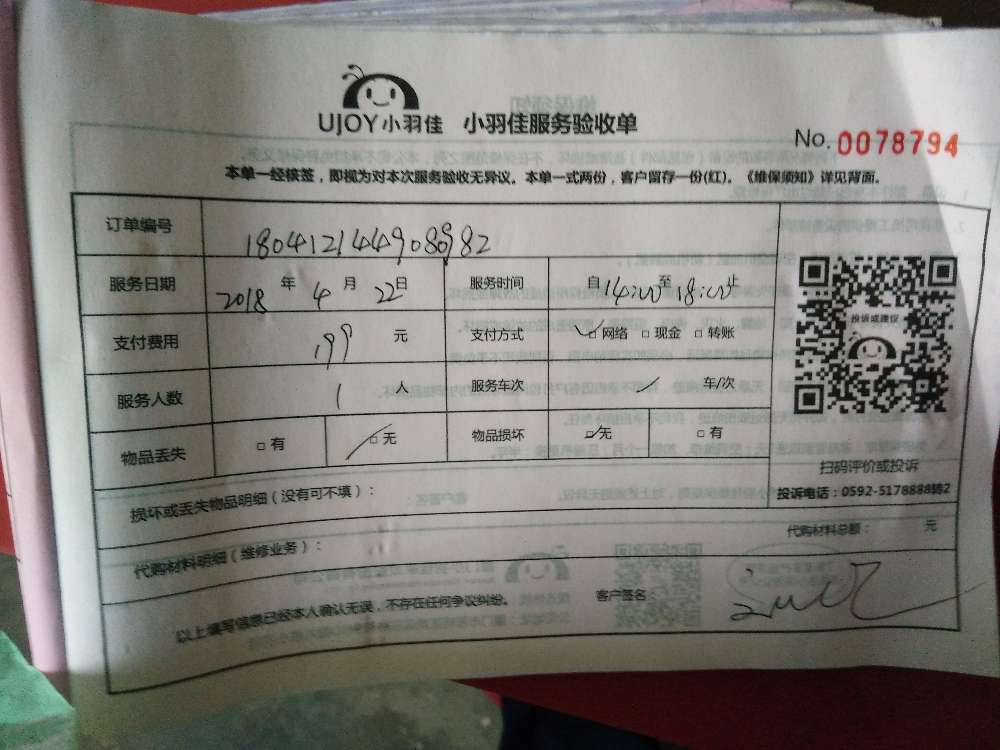 UJOY小羽佳 小羽佳服务验收单
No. 0078794
本单一经核签，即视为对本次服务验收无异议。本单一式两份，客户留存一份(红)。《维保须知》详见背面。
订单编号 180412144908982
服务日期 2018 年 4 月 22日 服务时间 自14:00至18:00止
支付费用 199 元 支付方式 ☑网络 □现金 □转账
服务人数 1 人 服务车次 / 车/次
物品丢失 □有 ☑无 物品损坏 ☑无 □有
投诉或建议
扫码评价或投诉
投诉电话：0592-5178888转2
损坏或丢失物品明细（没有可不填）：
代购材料明细（维修业务）： 代购材料总额： 元
以上填写信息已经本人确认无误，不存在任何争议纠纷。 客户签名：